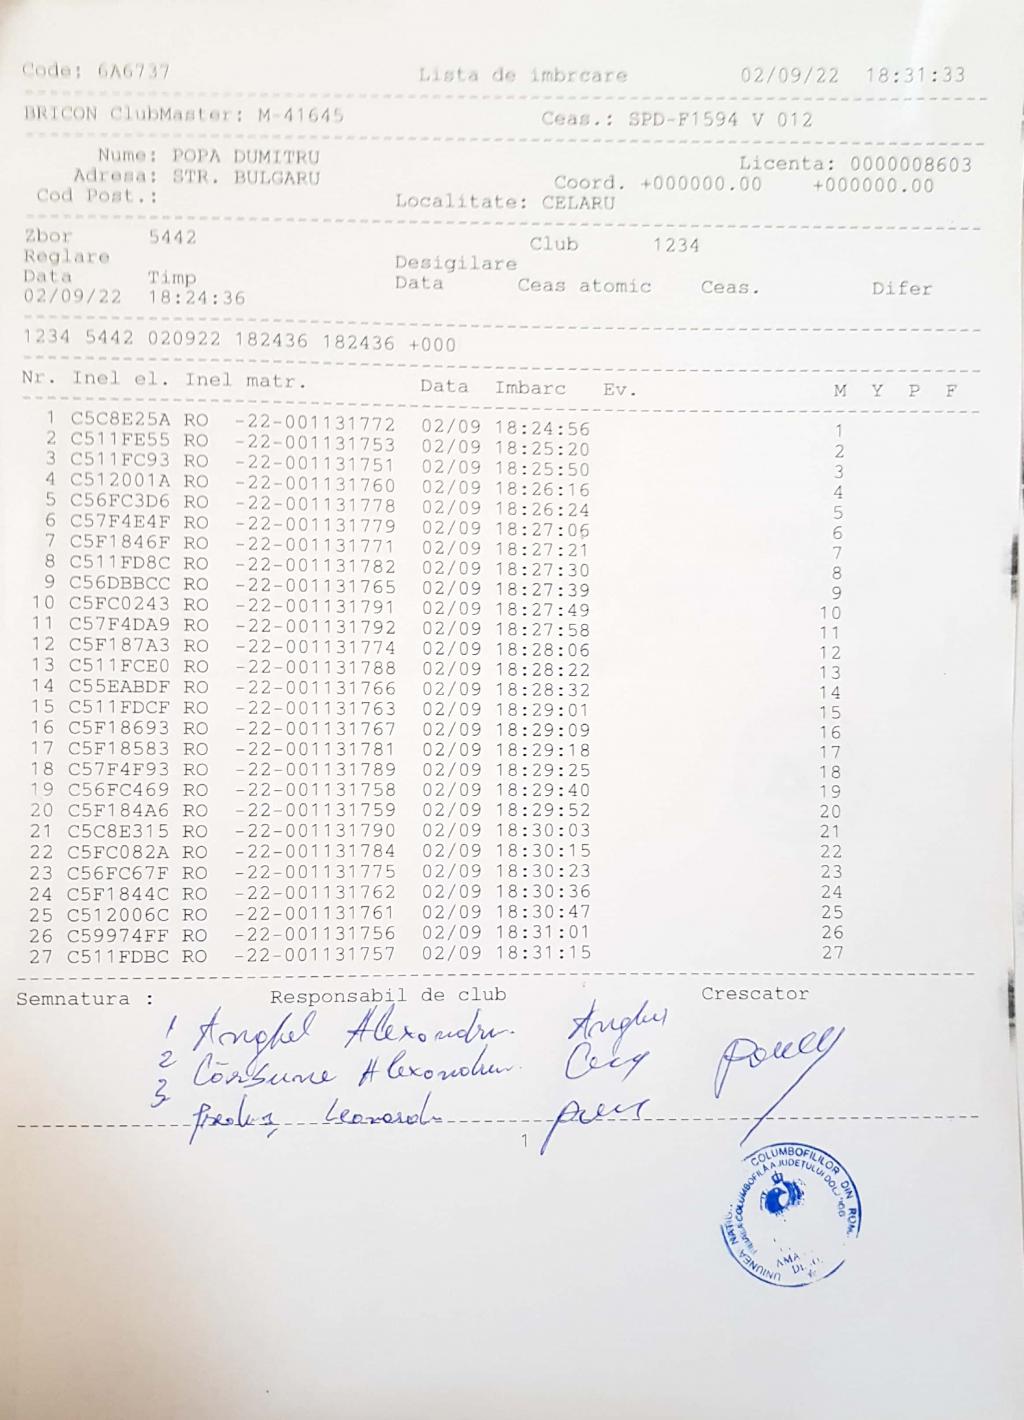 Code: 6A6737 Lista de imbrcare 02/09/22 18:31:33
BRICON ClubMaster: M-41645 Ceas.: SPD-F1594 V 012
Nume: POPA DUMITRU Licenta: 0000008603
Adresa: STR. BULGARU Coord. +000000.00 +000000.00
Cod Post.: Localitate: CELARU
Zbor 5442 Club 1234
Reglare Desigilare
Data Timp Data Ceas atomic Ceas. Difer
02/09/22 18:24:36
1234 5442 020922 182436 182436 +000
Nr. Inel el. Inel matr. Data Imbarc Ev. M Y P F
1 C5C8E25A RO -22-001131772 02/09 18:24:56 1
2 C511FE55 RO -22-001131753 02/09 18:25:20 2
3 C511FC93 RO -22-001131751 02/09 18:25:50 3
4 C512001A RO -22-001131760 02/09 18:26:16 4
5 C56FC3D6 RO -22-001131778 02/09 18:26:24 5
6 C57F4E4F RO -22-001131779 02/09 18:27:06 6
7 C5F1846F RO -22-001131771 02/09 18:27:21 7
8 C511FD8C RO -22-001131782 02/09 18:27:30 8
9 C56DBBCC RO -22-001131765 02/09 18:27:39 9
10 C5FC0243 RO -22-001131791 02/09 18:27:49 10
11 C57F4DA9 RO -22-001131792 02/09 18:27:58 11
12 C5F187A3 RO -22-001131774 02/09 18:28:06 12
13 C511FCE0 RO -22-001131788 02/09 18:28:22 13
14 C55EABDF RO -22-001131766 02/09 18:28:32 14
15 C511FDCF RO -22-001131763 02/09 18:29:01 15
16 C5F18693 RO -22-001131767 02/09 18:29:09 16
17 C5F18583 RO -22-001131781 02/09 18:29:18 17
18 C57F4F93 RO -22-001131789 02/09 18:29:25 18
19 C56FC469 RO -22-001131758 02/09 18:29:40 19
20 C5F184A6 RO -22-001131759 02/09 18:29:52 20
21 C5C8E315 RO -22-001131790 02/09 18:30:03 21
22 C5FC082A RO -22-001131784 02/09 18:30:15 22
23 C56FC67F RO -22-001131775 02/09 18:30:23 23
24 C5F1844C RO -22-001131762 02/09 18:30:36 24
25 C512006C RO -22-001131761 02/09 18:30:47 25
26 C59974FF RO -22-001131756 02/09 18:31:01 26
27 C511FDBC RO -22-001131757 02/09 18:31:15 27
Semnatura : Responsabil de club Crescator
1 Anghel Alexandru
2 Cărbune Alexandru
3 Leonardu
1
UNIUNEA COLUMBOFILILOR DIN
COLUMBOFILĂ A JUDEȚULUI DOLJ